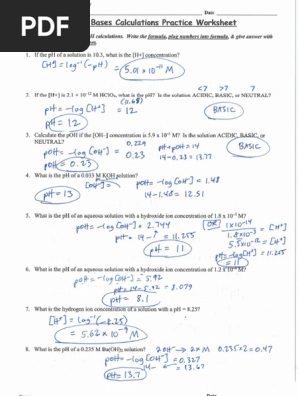 PDF
Date
Bases Calculations Practice Worksheet
calculations. Write the formula, plug numbers into formula, & give answer with
1. If the pH of a solution is 10.3, what is the [H+] concentration?
[H+] = log⁻¹(-pH) = 5.01 x 10⁻¹¹ M
<7 >7 7
2. If the [H+] is 2.1 × 10⁻¹² M HClO₄, what is the pH? Is the solution ACIDIC, BASIC, or NEUTRAL?
(11.68)
pH = -log[H+] = 12
BASIC
pH = 12
3. Calculate the pOH if the [OH-] concentration is 5.9 x 10⁻¹ M? Is the solution ACIDIC, BASIC, or
NEUTRAL?
0.229
pOH = -log[OH-] = 0.23
pH + pOH = 14
14 - 0.23 = 13.77
BASIC
pOH = 0.23
4. What is the pH of a 0.033 M KOH solution?
pH = 13
pOH = -log[OH-] = 1.48
14 - 1.48 = 12.51
5. What is the pH of an aqueous solution with a hydroxide ion concentration of 1.8 x 10⁻³ M?
pOH = -log[OH-] = 2.744
pH = 14 - = 11.255
pH = 11
OR
1 x 10⁻¹⁴
1.8 x 10⁻³
5.5 x 10⁻¹² = [H+]
pH = -log[H+] = 11.255
= 11
6. What is the pH of an aqueous solution with a hydroxide ion concentration of 1.2 x 10⁻⁶ M?
pOH = -log[OH-] = 5.92
pH = 14 - 5.92 = 8.079
pH = 8.1
7. What is the hydrogen ion concentration of a solution with a pH = 8.25?
[H+] = log⁻¹(-8.25)
= 5.62 x 10⁻⁹ M
8. What is the pH of a 0.235 M Ba(OH)₂ solution?
2OH- → 2 x M
0.235 x 2 = 0.47
pOH = -log[OH-] = 0.327
pH = 14 - = 13.67
pH = 13.7